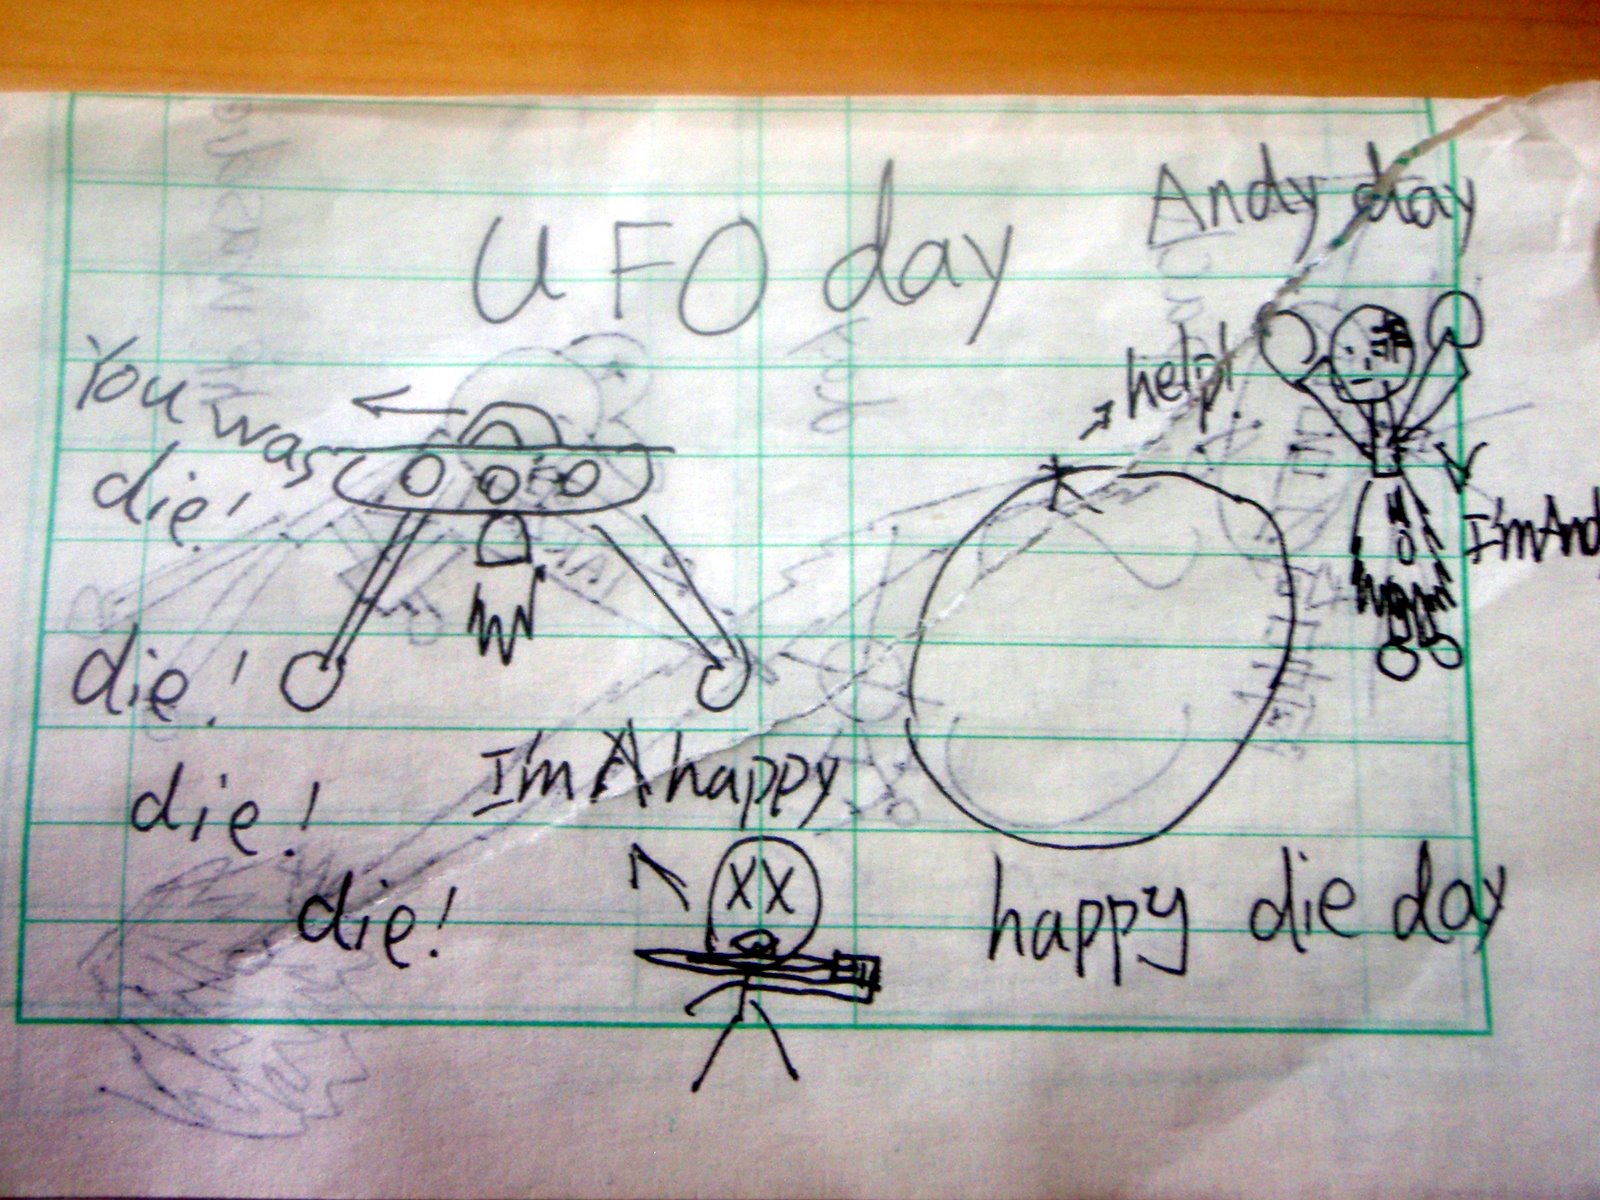 Andy day
UFO day
help!
You was
die!
UFO
I'm And
die!
I'm A happy
die!
die!
happy die day